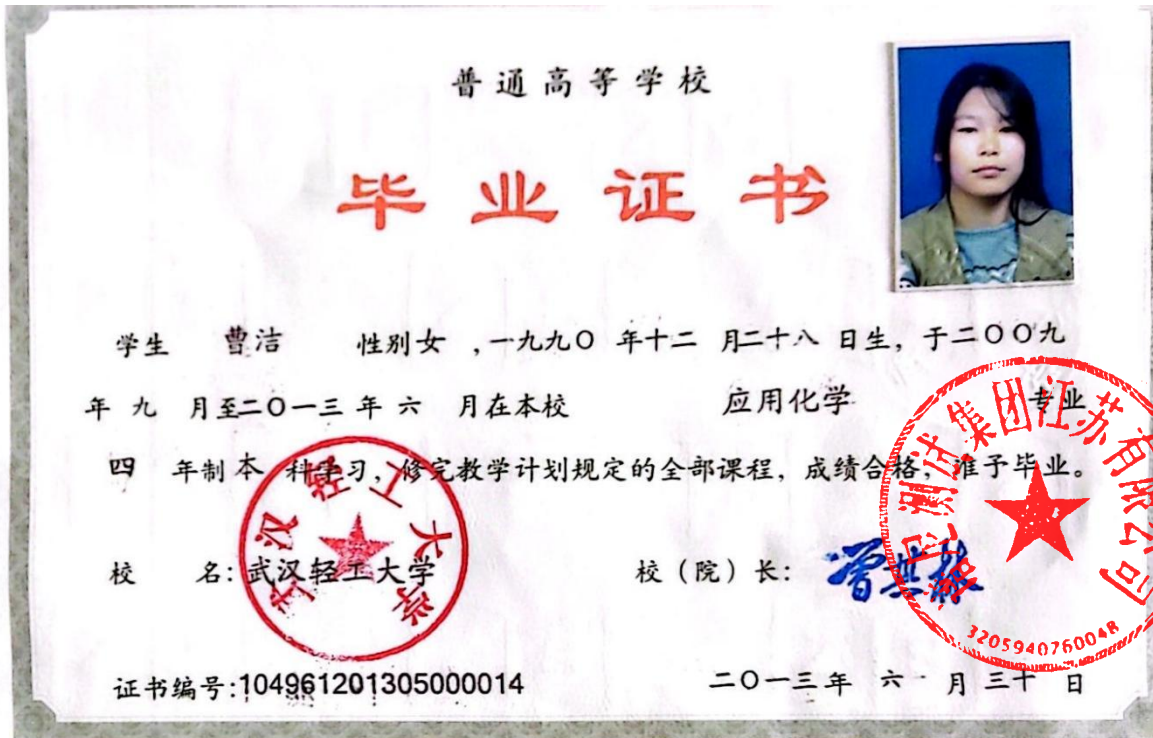 普通高等学校
毕业证书
学生 曹洁 性别女 ,一九九〇 年十二 月二十八 日生，于二〇〇九
年 九 月至二〇一三 年 六 月在本校 应用化学 专业
四 年制 本 科学习，修完教学计划规定的全部课程，成绩合格，准予毕业。
校 名：武汉轻工大学 校（院）长：
武汉轻工大学
测试集团江苏有限公司
3205940760048
证书编号:104961201305000014 二〇一三年 六 月 三十 日